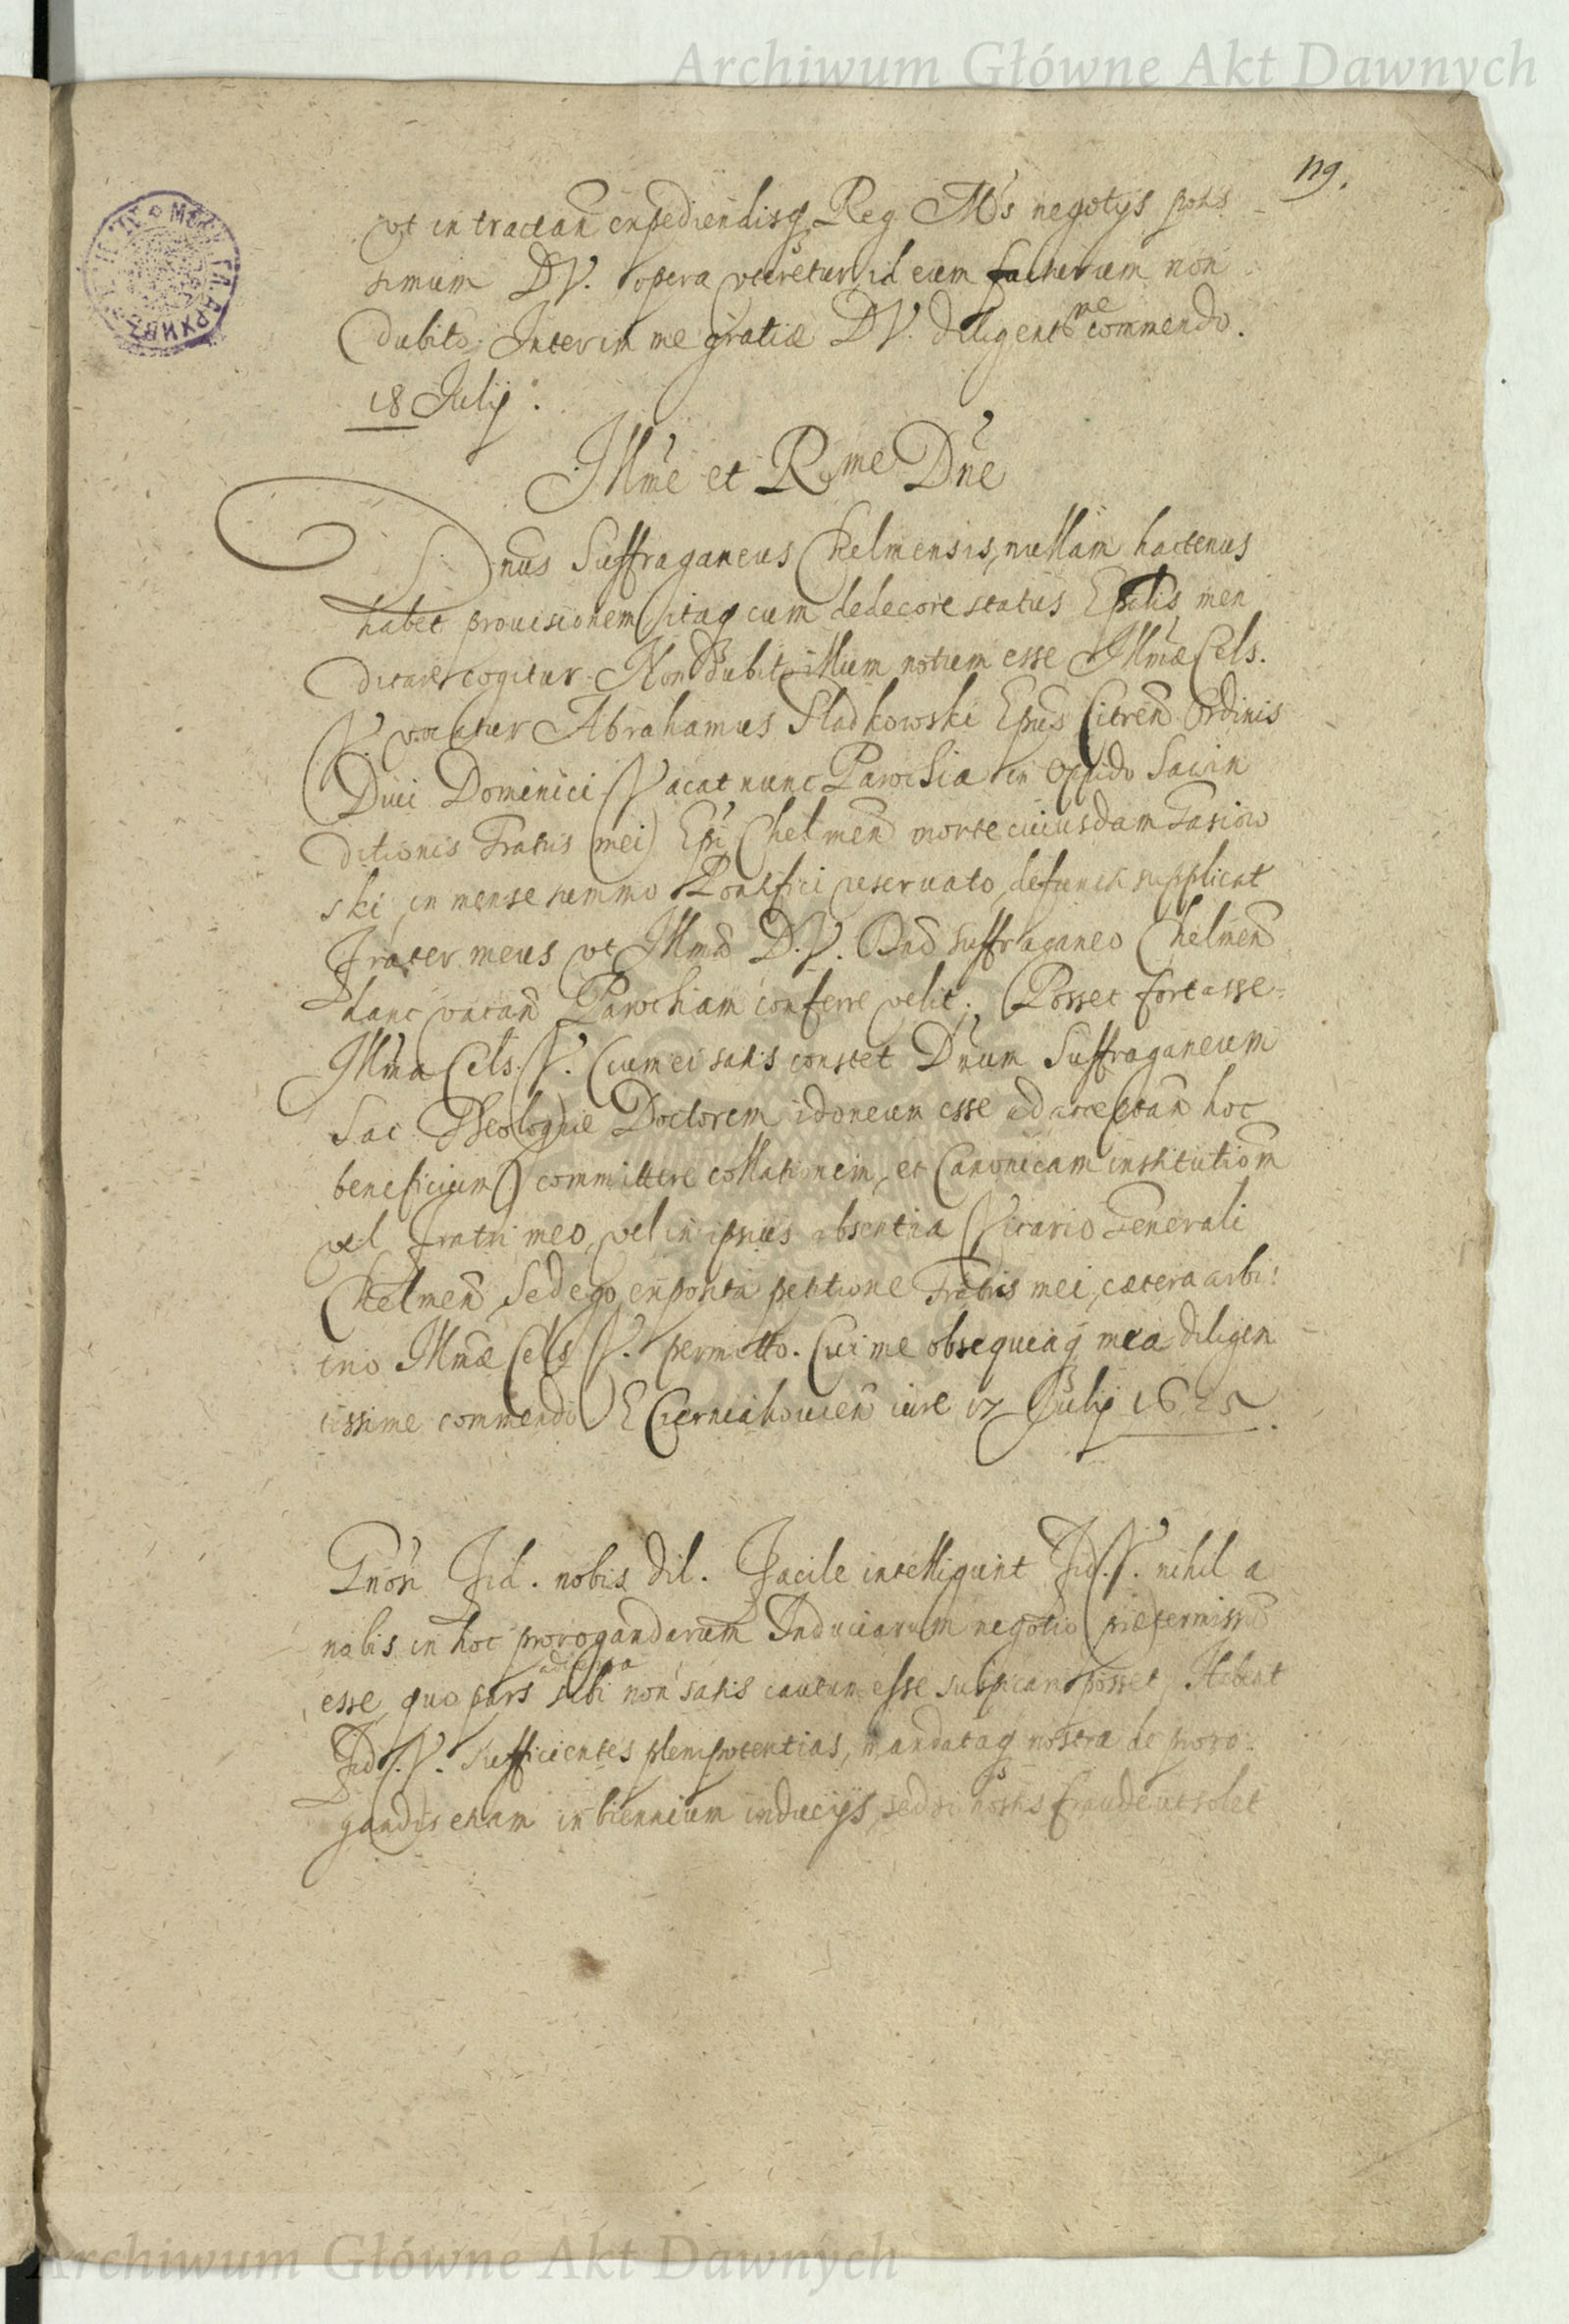 Archiwum Główne Akt Dawnych
119.
vt in tractan̄ expediendisq̨ Reg Mtis negotijs potis
simum DV. opera vteretur, id eum facturum non
dubito. Interim me gratiæ DV. diligentme commendo.
18 Julij.
Illmē et Rme Dnē
Dnus Suffraganeus Chelmensis, nullam hactenus
habet prouisionem, itaq̨ cum dedecore status Epālis, men
dicare cogitur. Non dubito illum notum esse Illmæ Cels.
V. vocatur Abrahamus Sladkowski Epus̄ Citren̄ Ordinis
Diui Dominici. Vacat nunc Parochia in Oppido Sawin
ditionis Fratris mei Epi Chelmen̄ morte cuiusdam Gasiow
ski in mense summo Pontifici reseruato, defuncti, supplicat
Frater meus vt Illma D.V. Dno Suffraganeo Chelmen̄
hanc vacan̄ Parochiam conferre velit. Posset fortasse
Illma Cels. V. (cum ei satis constet Dnum Suffraganeum
Sac Theologiæ Doctorem idoneum esse ad acceptan̄ hoc
beneficium) committere collationem, et Canonicam institutiom̄
vel Fratri meo, vel in ipsius absentia Vicario Generali
Chelmen̄ Sed ego exposita petitione Fratris mei, cætera arbi:
trio Illmæ Cels V. permitto. Cui me obsequiaq̨ mea diligen
tissime commendo E Czerniakouien̄ rure 17 Julij 1625.
Gnosi Fid. nobis dil. Facile intelligunt Fid. V. nihil a
nobis in hoc prorogandarum Induciarum negotio prætermissū
esse, quo pars aduersa sibi non satis cautum esse suspicari posset. Habent
Fid. V. sufficientes plenipotentias, mandataq̨ nostra de proro:
gandis etiam in biennium inducijs, sed si hostis fraude ut solet
Archiwum Główne Akt Dawnych